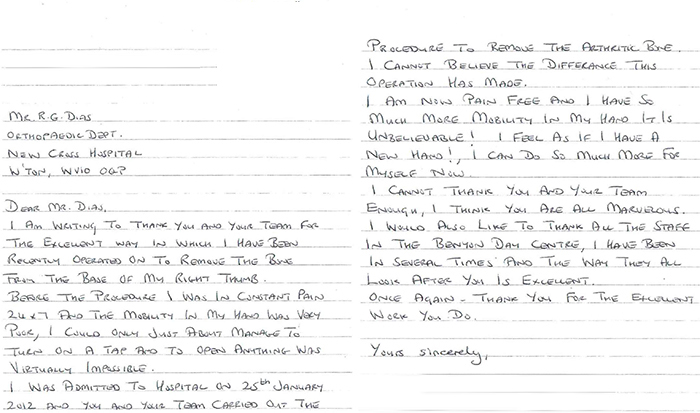 MR. R.G. DIAS
ORTHOPAEDIC DEPT.
NEW CROSS HOSPITAL
W'TON, WV10 0QP
DEAR MR. DIAS,
I AM WRITING TO THANK YOU AND YOUR TEAM FOR
THE EXCELLENT WAY IN WHICH I HAVE BEEN
RECENTLY OPERATED ON TO REMOVE THE BONE
FROM THE BASE OF MY RIGHT THUMB.
BEFORE THE PROCEDURE I WAS IN CONSTANT PAIN
24x7 AND THE MOBILITY IN MY HAND WAS VERY
POOR, I COULD ONLY JUST ABOUT MANAGE TO
TURN ON A TAP AND TO OPEN ANYTHING WAS
VIRTUALLY IMPOSSIBLE.
I WAS ADMITTED TO HOSPITAL ON 25th JANUARY
2012 AND YOU AND YOUR TEAM CARRIED OUT THE
PROCEDURE TO REMOVE THE ARTHRITIC BONE.
I CANNOT BELIEVE THE DIFFERANCE THIS
OPERATION HAS MADE.
I AM NOW PAIN FREE AND I HAVE SO
MUCH MORE MOBILITY IN MY HAND IT IS
UNBELIEVABLE! I FEEL AS IF I HAVE A
NEW HAND!, I CAN DO SO MUCH MORE FOR
MYSELF NOW.
I CANNOT THANK YOU AND YOUR TEAM
ENOUGH, I THINK YOU ARE ALL MARVELOUS.
I WOULD ALSO LIKE TO THANK ALL THE STAFF
IN THE BENYON DAY CENTRE, I HAVE BEEN
IN SEVERAL TIMES AND THE WAY THEY ALL
LOOK AFTER YOU IS EXCELLENT.
ONCE AGAIN - THANK YOU FOR THE EXCELLENT
WORK YOU DO.
YOURS SINCERELY,